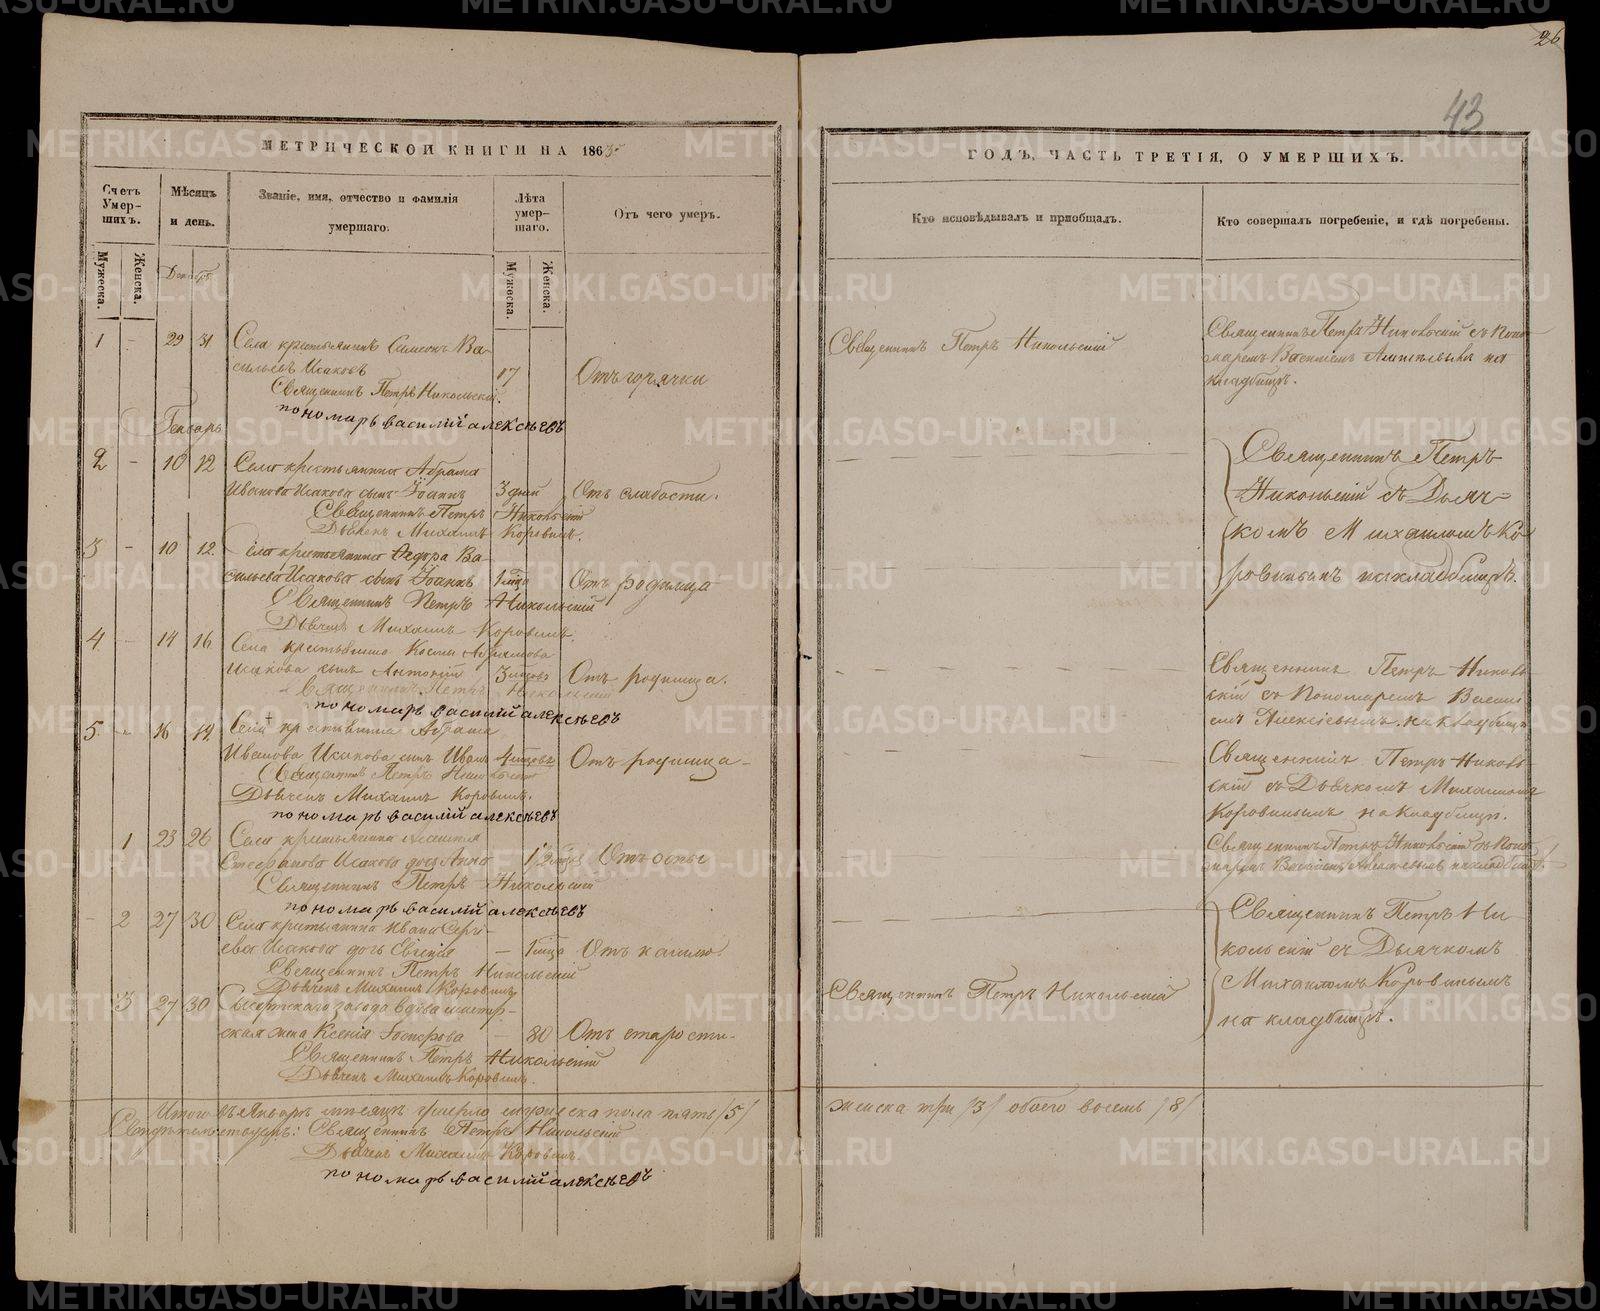 26
43
МЕТРИЧЕСКОЙ КНИГИ НА 1865
Счетъ Умер-шихъ.
Мѣсяцъ и день.
Званіе, имя, отчество и фамилія умершаго.
Лѣта умер-шаго.
Отъ чего умеръ.
Мужеска.
Женска.
Мужеска.
Женска.
Декабрь
1 - 29 31 Села крестьянинъ Симеонъ Ва-
сильевъ Исаковъ 17 Отъ горячки
Священникъ Петръ Никольскій.
пономарь василій алексѣевъ
Генварь
2 - 10 12 Села крестьянина Абрама
Иванова Исакова сынъ Іоаннъ 3 дней Отъ слабости.
Священникъ Петръ Никольскій
Дьячекъ Михаилъ Коровинъ.
3 - 10 12 Села крестьянина Федора Ва-
сильева Исакова сынъ Іоаннъ 1 мца Отъ родимца
Священникъ Петръ Никольскій
Дьячекъ Михаилъ Коровинъ
4 - 14 16 Села крестьянина Космы Абрамова
Исакова сынъ Антоній 3 Отъ родимца.
Священникъ Петръ Никольскій
пономарь василій алексѣевъ
5 - 16 19 Села крестьянина Абрама
Иванова Исакова сынъ Иванъ 4 Отъ родимца -
Священникъ Петръ Никольскій
Дьячекъ Михаилъ Коровинъ.
пономарь василій алексѣевъ
1 23 26 Села крестьянина
Стефанова Исакова дочь Анна 1 Отъ оспы
Священникъ Петръ Никольскій
пономарь василій алексѣевъ
- 2 27 30 Села крестьянина Ивана Серги-
ева Исакова дочь Евгенія - 1 мца Отъ кашлю.
Священникъ Петръ Никольскій
Дьячекъ Михаилъ Коровинъ
3 27 30 Сысертскаго завода вдова мастер-
ская жена Ксенія - 80 Отъ старости.
Священникъ Петръ Никольскій
Дьячекъ Михаилъ Коровинъ.
Итого въ Январѣ мѣсяцѣ умерло мужеска пола пять /5/
Священникъ Петръ Никольскій
Дьячекъ Михаилъ Коровинъ.
пономарь василій алексѣевъ
ГОДЪ, ЧАСТЬ ТРЕТІЯ, О УМЕРШИХЪ.
Кто исповѣдывалъ и пріобщалъ.
Кто совершалъ погребеніе, и гдѣ погребены.
Священникъ Петръ Никольскій
Священникъ Петръ Никольскій съ Поно-
маремъ Василіемъ Алексѣевымъ на
кладбищѣ.
Священникъ Петръ
Никольскій съ Дьяч-
комъ Михаиломъ Ко-
ровинымъ на кладбищѣ.
Священникъ Петръ Николь-
скій съ Пономаремъ Васили-
емъ Алексѣевымъ на кладбищѣ
Священникъ Петръ Николь-
скій съ Дьячкомъ Михаиломъ
Коровинымъ на кладбищѣ.
Священникъ Петръ Никольскій съ Поно-
маремъ Василіемъ Алексѣевымъ на кладбищѣ
Священникъ Петръ Ни-
кольскій съ Дьячкомъ
Михаиломъ Коровинымъ
на кладбищѣ.
Священникъ Петръ Никольскій
женска три /3/ обоего восемь /8/
METRIKI.GASO-URAL.RU